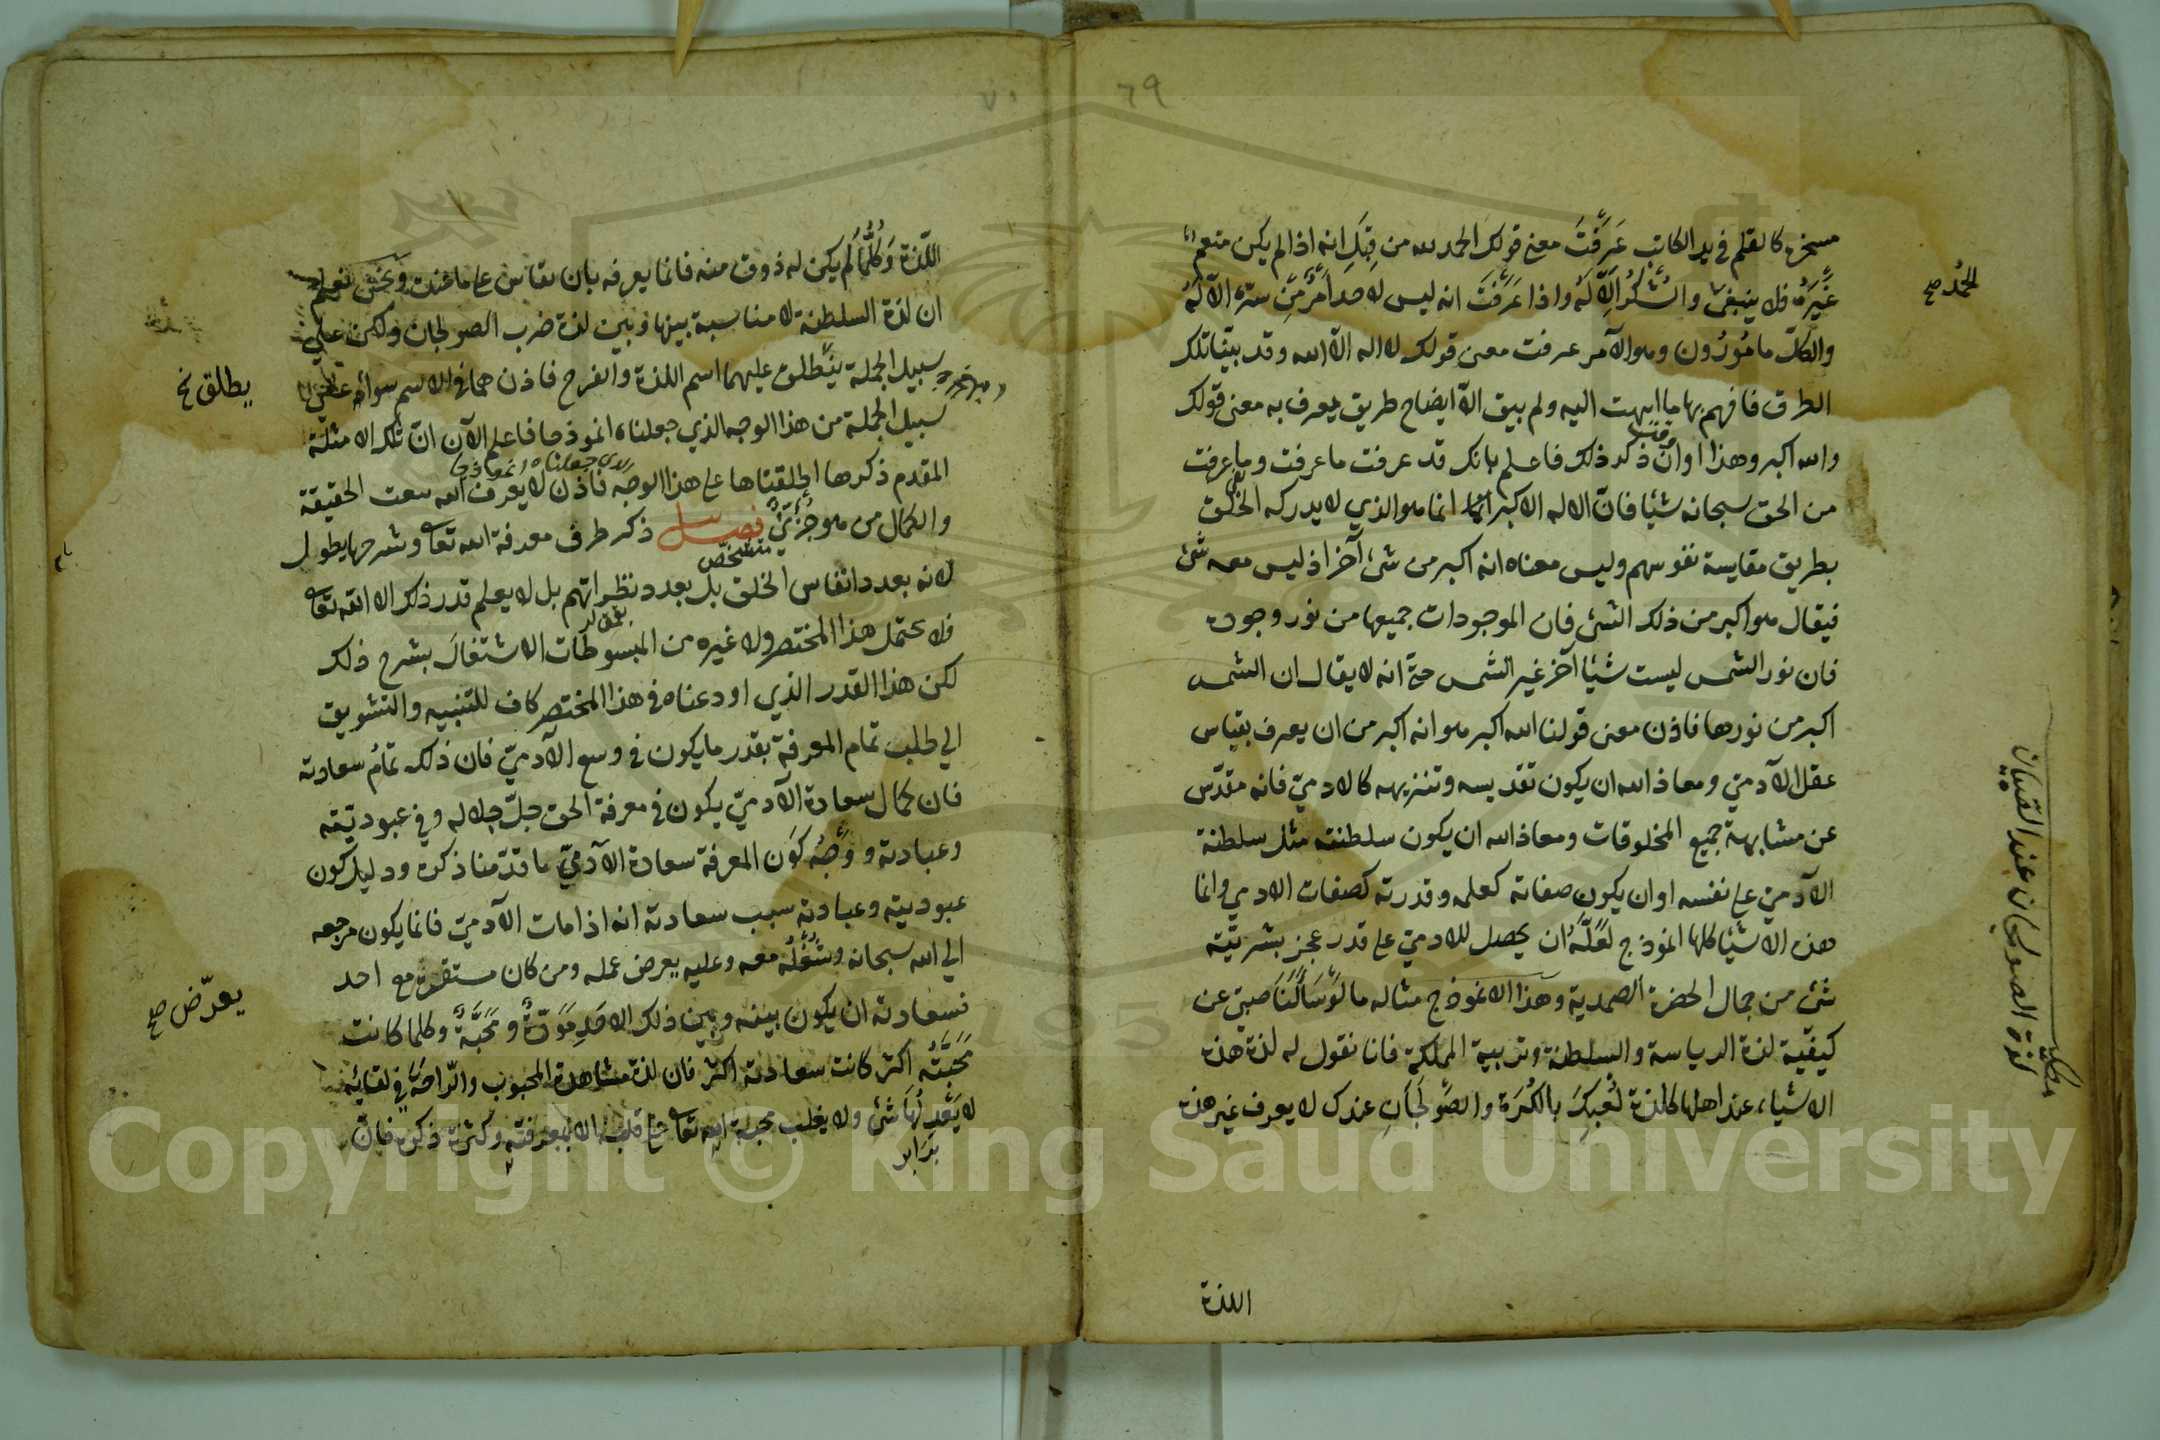 ٦٩
مسخرة كالقلم فى يد الكاتب عَرَفْتَ معنى قولك الحمد لله من قِبَلِ انه اذا لم يكن منعم
غَيْرَهُ فلا ينبغى والشُّكْرُ اِلّا لَهُ واذا عَرَفْتَ انه ليس لاحد اَمْرٌ مِنْ سترة الّا لَهُ
والكلّ مامُوْرُون وهو الآمر عرفت معنى قولك لا اله الا الله وقد بيّنا تلك
الطرق فافهم بها ما انهيت اليه ولم يبق الّا ايضاح طريق يعرف به معنى قولك
والله اكبر وهذا اوان ذكر ذلك فاعلم بانك قد عرفت ما عرفت وما عرفت
من الحق سبحانه شيئا فانّ الاله الاكبر انما هو الذي لا يدركه الخلق
بطريق مقايسة نفوسهم وليس معناه انه اكبر من شئ آخر اذ ليس معه شئ
فيقال هو اكبر من ذلك الشئ فان الموجودات جميعها من نور وجوده
فان نور الشمس ليست شيئا آخر غير الشمس حتى انه لا يقال ان الشمس
اكبر من نورها فاذن معنى قولنا الله اكبر هو انه اكبر من ان يعرف بقياس
عقل الآدميّ ومعاذ الله ان يكون تقديسه وتنزيهه كالادميّ فانه مقدّس
عن مشابهة جميع المخلوقات ومعاذ الله ان يكون سلطنته مثل سلطنة
الآدميّ على نفسه او ان يكون صفاته كعلمه وقدرته كصفات الادمي وانما
هذه الاشيا كلها انموذج لَعَلَّهُ ان يحصل للادميّ على قدر عجز بشريّته
شئ من جمال الحضرة الصمدية وهذا الانموذج مثاله ما لَوْ سَألَنَا صبيّ عن
كيفيّة لذة الرياسة والسلطنة وتربية المملكة فانا نقول له لذة هذه
الاشياء عند اهلها كلذة لُعْبِكَ بالكُرَة والصَّوْلَجَانِ عندك لا يعرف غير هذه
اللذة
الحمدُ صح
لذة الصولجان عند الصبيان
٧٠
اللّذة وَكُلُّمَا لَمْ يكن له ذوق منه فانما يعرفه بان يقاس على ما عنده ونحن نعلم
ان لذة السلطنة لا مناسبة بينها وبين لذة ضرب الصولجان ولكن على
سبيل الجملة ينطلق عليهما اسم اللذة والفرح فاذن هما فى الاسم سواء
سبيل الجملة من هذا الوجه الذي جعلناه انموذجا فاعلم الآن انّ تلك الامثلة
المقدم ذكرها اطلقناها على هذا الوجه فاذن لا يعرف الله بنعت الحقيقة
والكمال من هو جُزْئيّ فصل ذكر طرف معرفة الله تعا وشرحها يطول
لانه بعدد انفاس الخلق بل بعدد نظراتهم بل لا يعلم قدر ذلك الا الله تعا
فلا يحتمل هذا المختصر ولا غيره من المبسوطات الاشتغالَ بشرح ذلك
لكن هذا القدر الذي اودعناه فى هذا المختصر كاف للتنبيه والتشويق
الي طلب تمام المعرفة بقدر ما يكون فى وسع الآدميّ فان ذلك تمامُ سعادته
فان كمال سعادة الآدميّ يكون فى معرفة الحق جلّ جلاله وفي عبوديّته
وعبادته ووَجْهُ كوَن المعرفة سعادة الآدميّ ما قدّمنا ذكره ودليل كون
عبوديته وعبادته سبب سعادته انه اذا مات الآدميّ فانما يكون مرجعه
الي الله سبحانه وشُغْلُهُ معه وعليه يعرض عمله ومن كان مستقره مع احد
فسعادته ان يكون بينه وبين ذلك الاحَدِ مَوَدّةٌ ومَحَبَّةٌ وكلما كانت
مَحَبَّتُهُ اكثر كانت سعادته اكثر فان لذة مشاهدة المحبوب والرّاحة فى لقائه
لا يَعْدِلُهَا شئ ولا يغلب محبة الله تعا على قلب الا بمعرفته وكثرة ذكره فانّ
يطلق خ
يعرّض صح
الذي جعلناه انموذجا
متشخص
برابر
Copyright © King Saud University